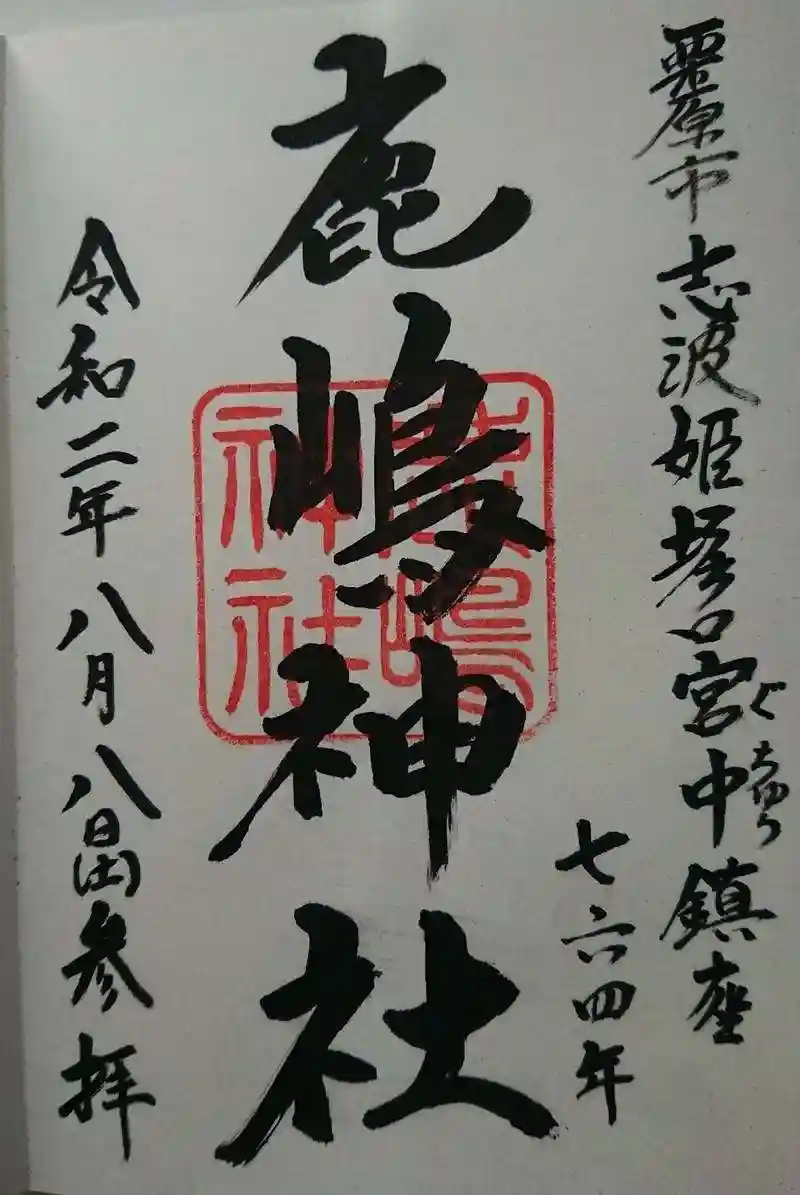 栗原市志波姫堀口宮中鎮座
ぐちゅう
七六四年
鹿嶋神社
鹿嶋神社
令和二年八月八日(土)参拝